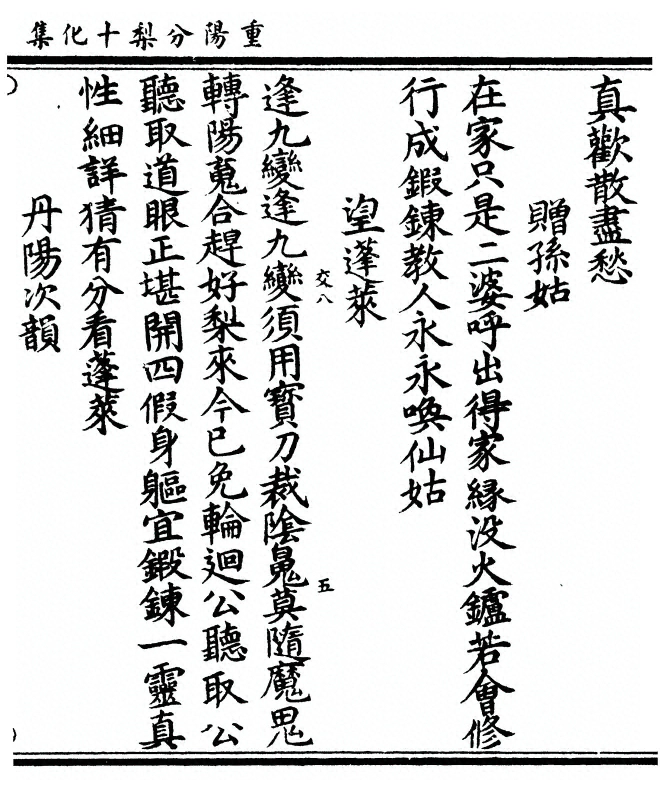 重陽分梨十化集
真歡散盡愁
贈孫姑
在家只是二婆呼出得家緣没火鑪若會修
行成鍜鍊教人永永喚仙姑
望蓬萊
逢九變逢九變交八須用寶刀裁陰莫五隨魔鬼
轉陽合趕好梨來今已免輪迴公聽取公
聽取道眼正堪開四假身軀宜鍜鍊一靈真
性細詳猜有分看蓬萊
丹陽次韻